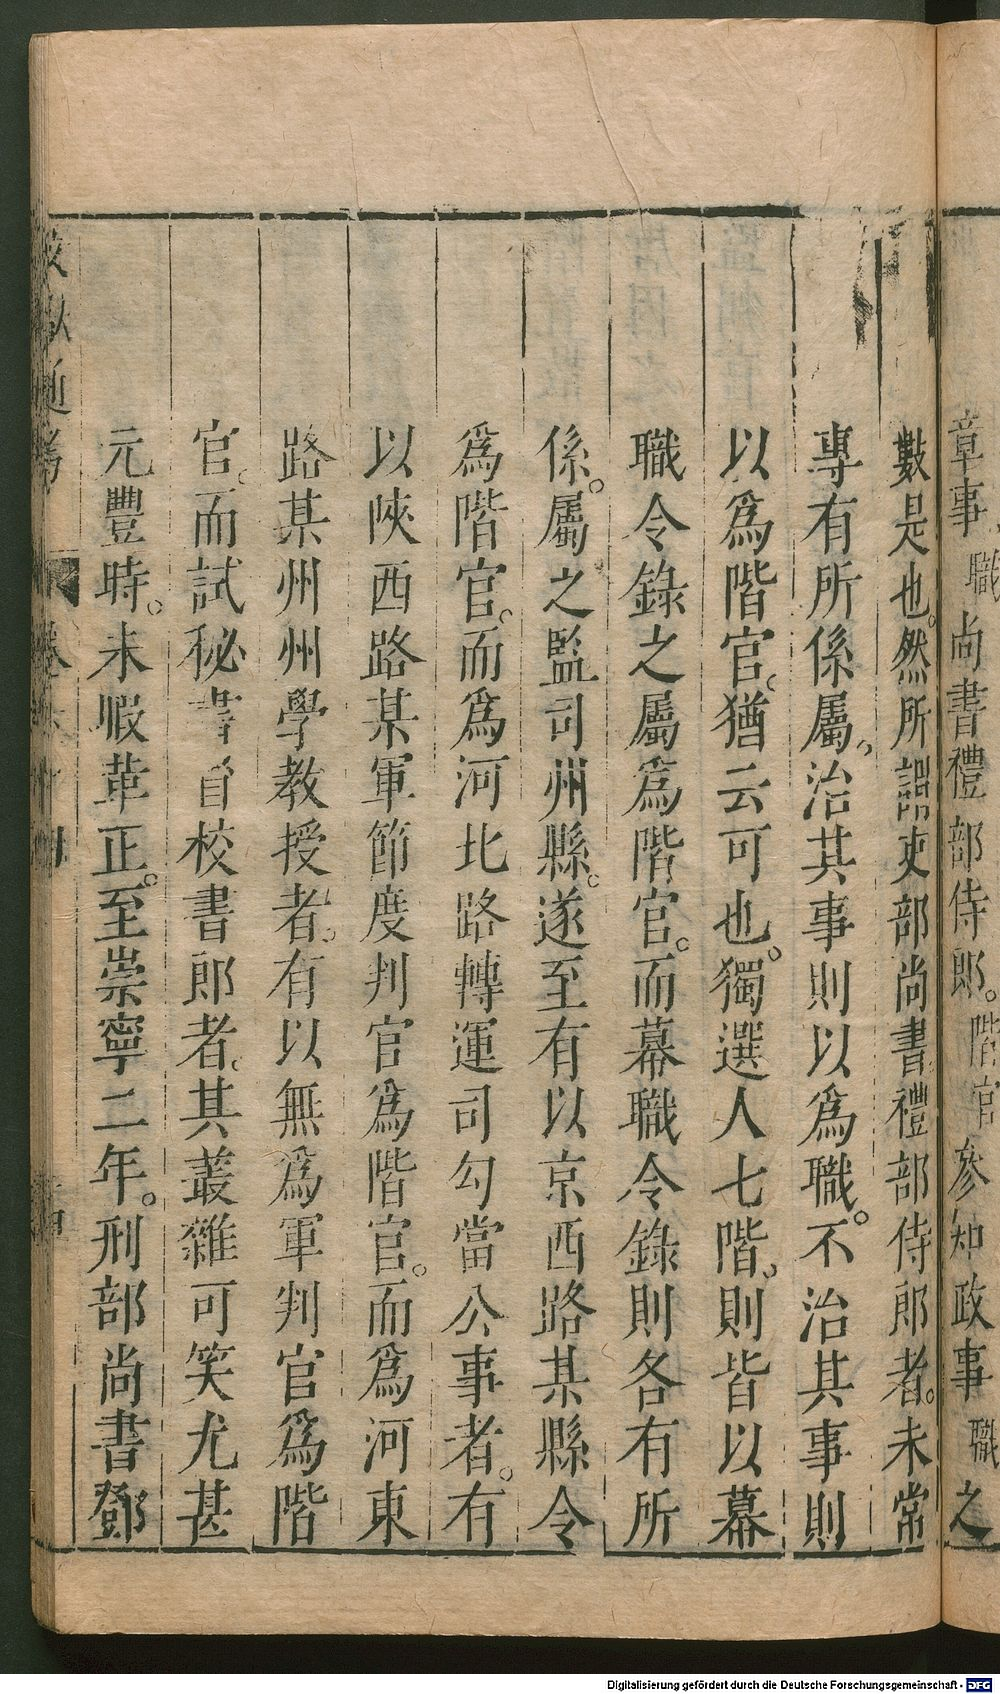 章事職尚書禮部侍郎。階官參知政事職之
數是也。然所謂吏部尚書禮部侍郎者。未嘗
專有所係屬。治其事則以爲職。不治其事則
以爲階官。猶云可也。獨選人七階。則皆以幕
職令錄之屬爲階官。而幕職令錄則各有所
係。屬之監司州縣。遂至有以京西路某縣令
爲階官。而爲河北路轉運司勾當公事者。有
以陝西路某軍節度判官爲階官。而爲河東
路某州州學教授者。有以無爲軍判官爲階
官。而試秘書省校書郎者。其叢雜可笑尤甚
元豐時。未暇革正。至崇寧二年。刑部尚書鄧
通考 卷六十四
Digitalisierung gefördert durch die Deutsche Forschungsgemeinschaft - DFG